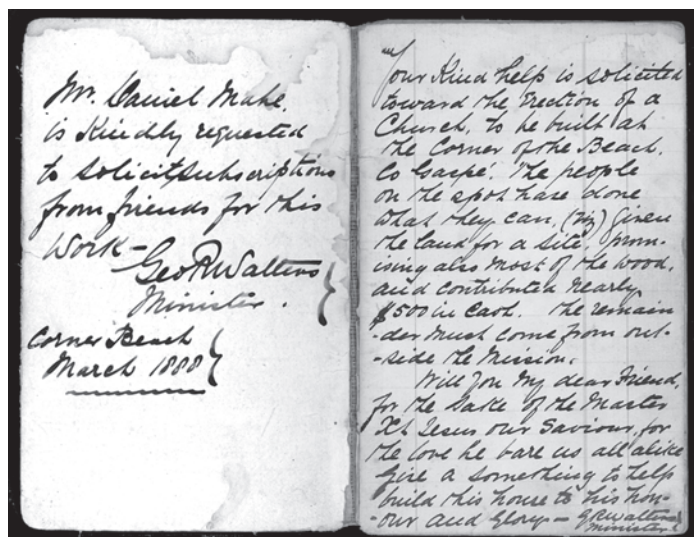 Mr. Daniel Mahe.
is Kindly requested
to solicit subscriptions
from friends for this
Work—
Geo R Walters
Minister.
Corner Beach
March 1888
Your Kind help is solicited
toward the Erection of a
Church, to be built at
the Corner of the Beach.
Co Gaspé. The people
on the spot have done
what they can, (viz) given
the land for a site, prom-
ising also most of the wood,
and contributed nearly
$500 in Cash. The remain
-der must come from out-
-side the Mission.
Will you my dear Friend,
for the Sake of the Master
Xt Jesus our Saviour, for
the love he bare us all alike
give a something to help
build this house to his hon-
-our and Glory— G R Walters
Minister